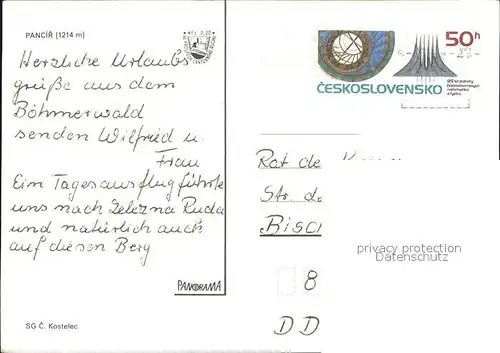 PANCÍŘ (1214 m)
Herzliche Urlaubs
grüße aus dem
Böhmerwald
senden Wilfried u.
Frau
Ein Tagesausflug führte
uns nach Železna Ruda
und natürlich auch
auf diesen Berg
PANORAMA
SG Č. Kostelec
50h
ČESKOSLOVENSKO
Rat de
Str. d
Bisc
8
DD
privacy protection
Datenschutz